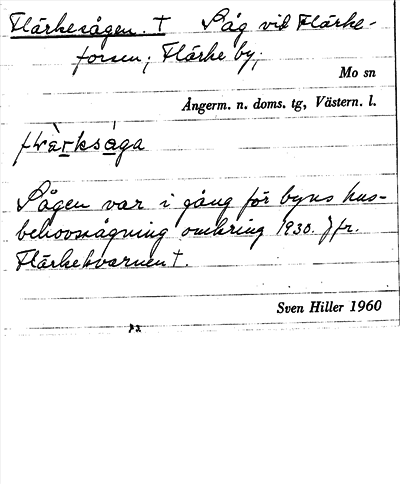 Flärkesågen. † Såg vid Flärke-
forsen; Flärke by;
Mo sn
Ångerm. n. doms. tg, Västern. l.
flʹärksåga
Sågen var i gång för byns hus-
behovssågning omkring 1930. Jfr.
Flärkekvarnen †.
Sven Hiller 1960